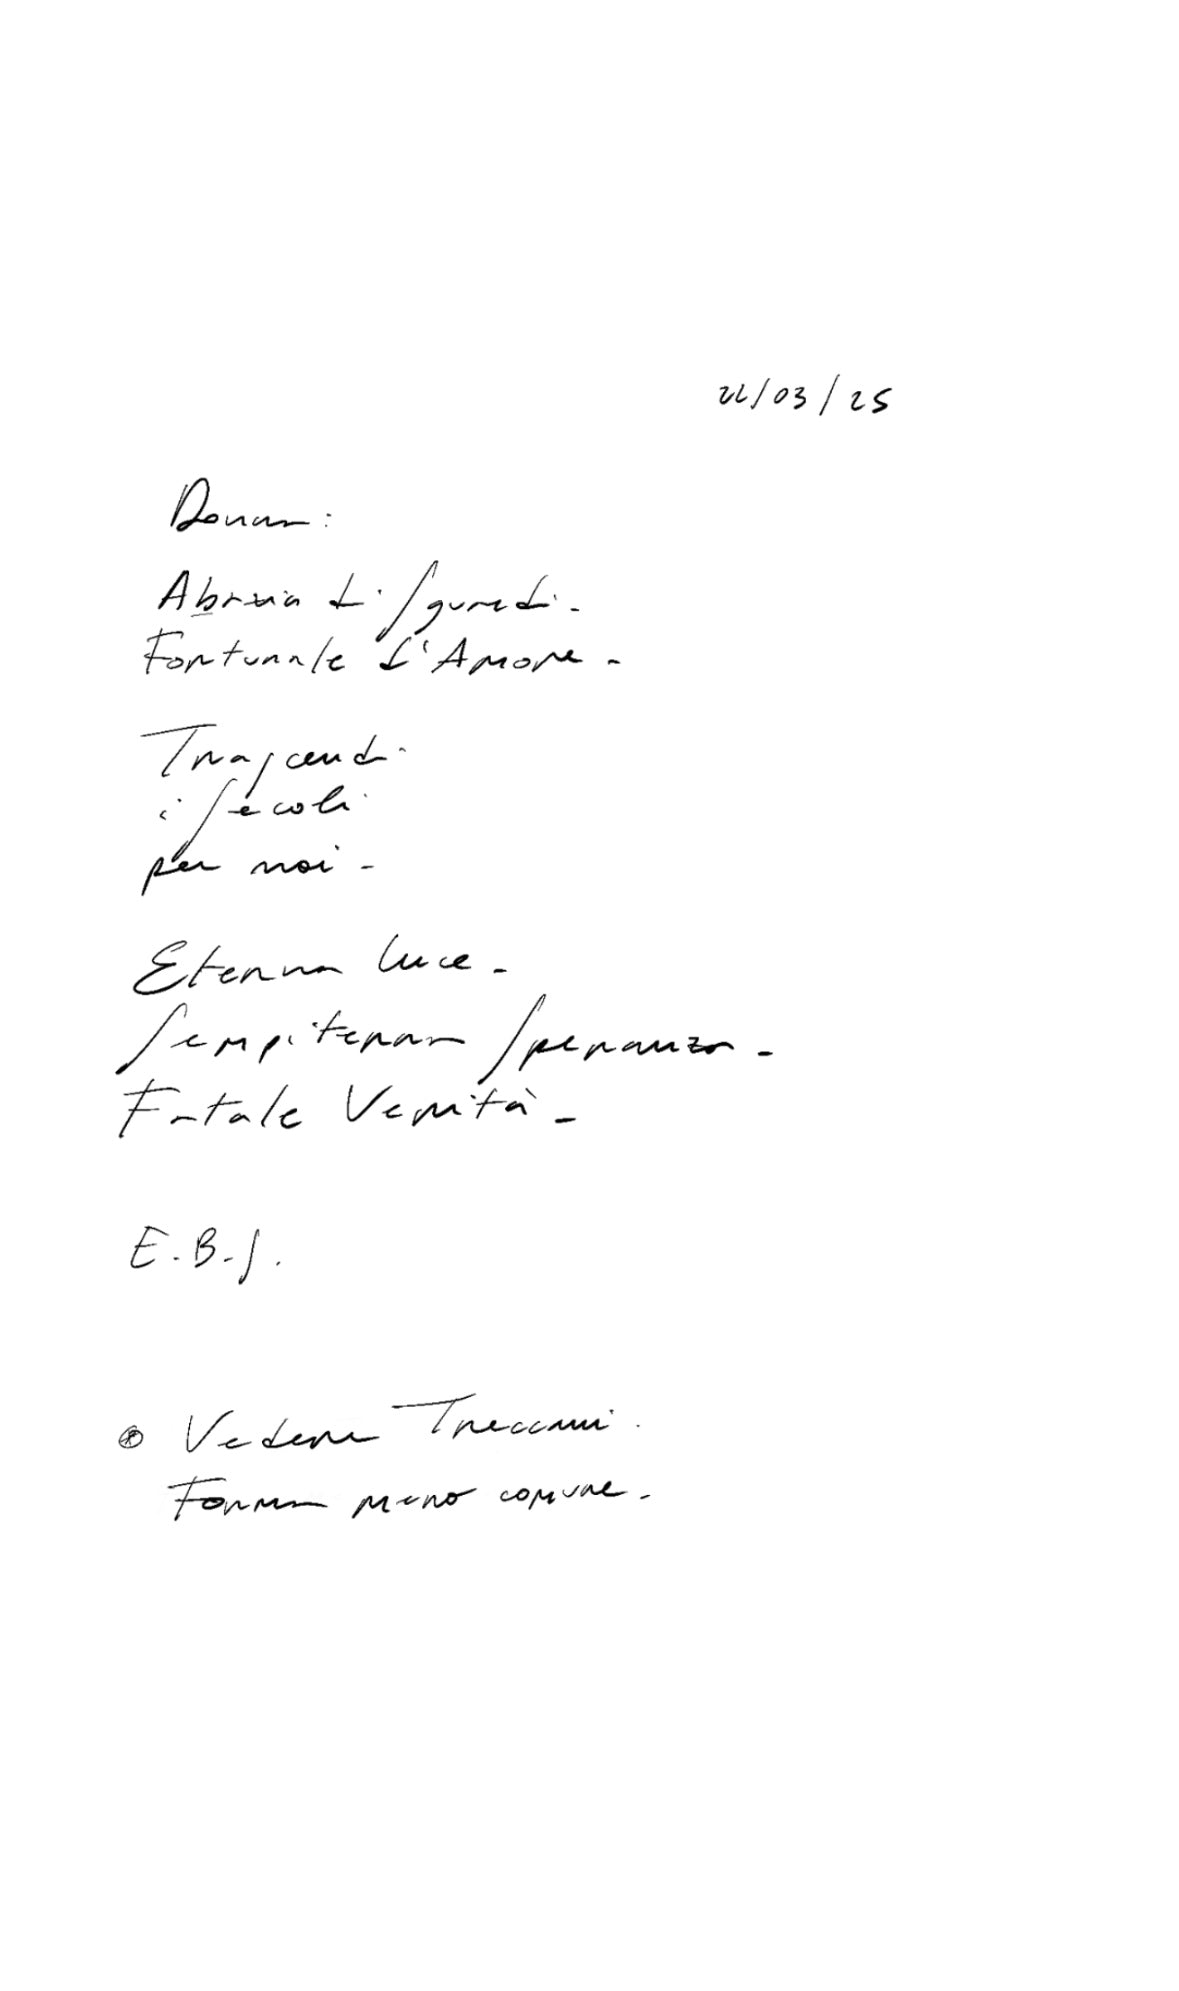 22/03/25
Donna:
Abrxia di sguardi.
Fortunale d'Amore -
Trascendi
i secoli
per noi -
Eterna luce -
Sempiterna Speranza -
Fatale Verità -
E. B. S.
Vedere Treccani.
Forma meno comune -